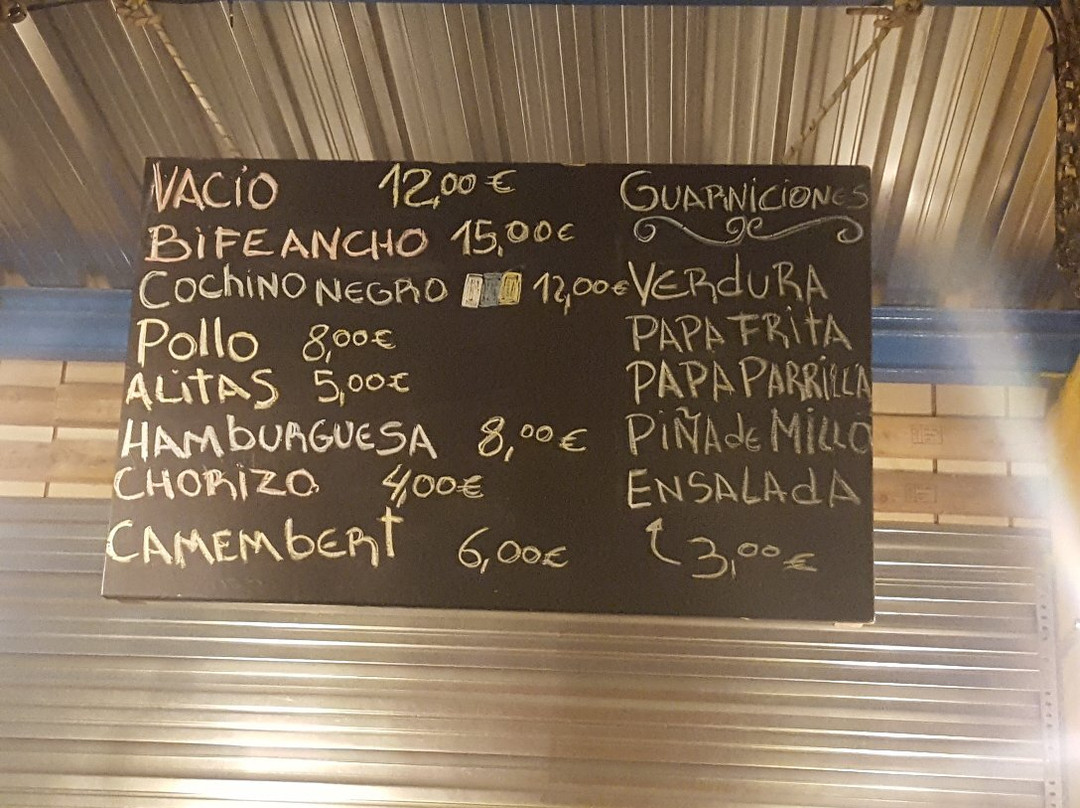 VACIO 12,00 €
BIFE ANCHO 15,00 €
COCHINO NEGRO 12,00 €
POLLO 8,00 €
ALITAS 5,00 €
HAMBURGUESA 8,00 €
CHORIZO 4,00 €
CAMEMBERT 6,00 €
GUARNICIONES
VERDURA
PAPA FRITA
PAPA PARRILLA
PIÑA de MILLO
ENSALADA
3,00 €